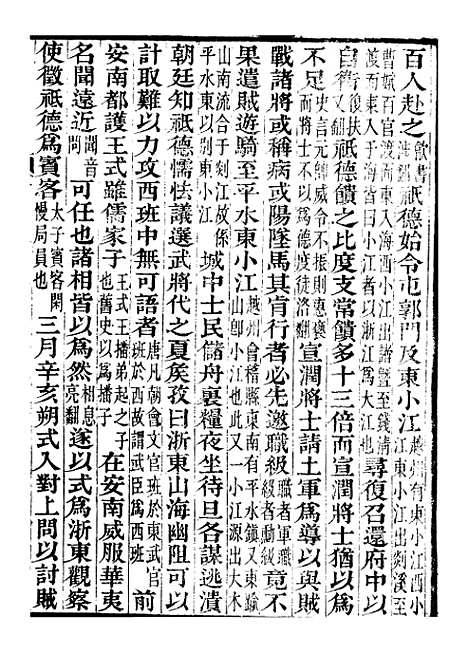 百人赴之歙書涉翻祗德始令屯郭門及東小江越州有東小江西小江東小江出剡溪至
曹娥百官渡而東入海西小江出諸暨至錢清渡而東入于海皆曰小江者以浙江爲大江也尋復召還府中以
自衞復扶又翻祗德饋之比度支常饋多十三倍而宣潤將士猶以爲
不足史言元帥威令不振則惠而將士不以爲惠度徒洛翻宣潤將士請土軍爲導以與賊
戰諸將或稱病或陽墜馬其肯行者必先邀職級職者軍職級者勳級竟不
果遣賊遊騎至平水東小江越州會稽縣東有平水鎮又東踰山卽小江也此又一小江源出大木
山南流合于剡江故係平水東以別小江城中士民儲舟裹糧夜坐待旦各謀逃潰
朝廷知祗德懦怯議選武將代之夏矦孜曰浙東山海幽阻可以
計取難以力攻西班中無可語者唐凡朝會文官班於東武官班於西故謂武臣爲西班前
安南都護王式雖儒家子王式王播弟起之子也舊史以爲播子在安南威服華夷
名聞遠近聞音問可任也諸相皆以爲然相息亮翻遂以式爲浙東觀察
使徵祗德爲賓客太子賓客閑慢局員也三月辛亥朔式入對上問以討賊